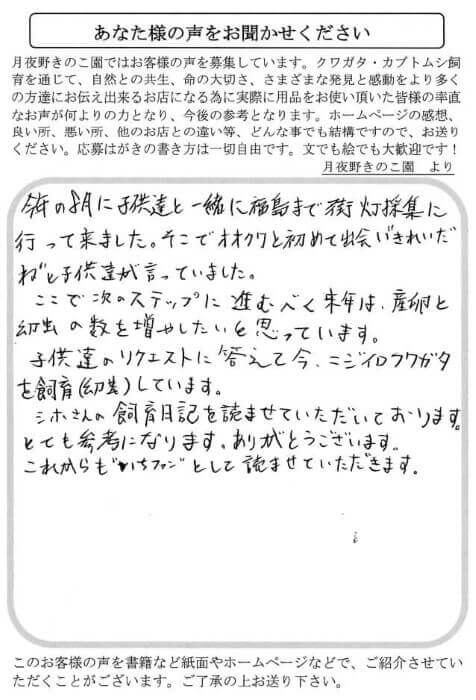 あなた様の声をお聞かせください
月夜野きのこ園ではお客様の声を募集しています。クワガタ・カブトムシ飼
育を通じて、自然との共生、命の大切さ、さまざまな発見と感動をより多く
の方達にお伝え出来るお店になる為に実際に用品をお使い頂いた皆様の率直
なお声が何よりの力となり、今後の参考となります。ホームページの感想、
良い所、悪い所、他のお店との違い等、どんな事でも結構ですので、お送り
ください。応募はがきの書き方は一切自由です。文でも絵でも大歓迎です！
月夜野きのこ園 より
今年の8月に子供達と一緒に福島まで街灯採集に
行って来ました。そこでオオクワと初めて出会いきれいだ
ね"と子供達が言っていました。
ここで次のステップに進むべく来年は、産卵と
幼虫の数を増やしたいと思っています。
子供達のリクエストに答えて今、ニジイロクワガタ
を飼育(幼虫)しています。
シホさんの飼育日記を読ませていただいております。
とても参考になります。ありがとうございます。
これからも"いちファン"として読ませていただきます。
このお客様の声を書籍など紙面やホームページなどで、ご紹介させてい
ただくことがございます。ご了承の上お送り下さい。